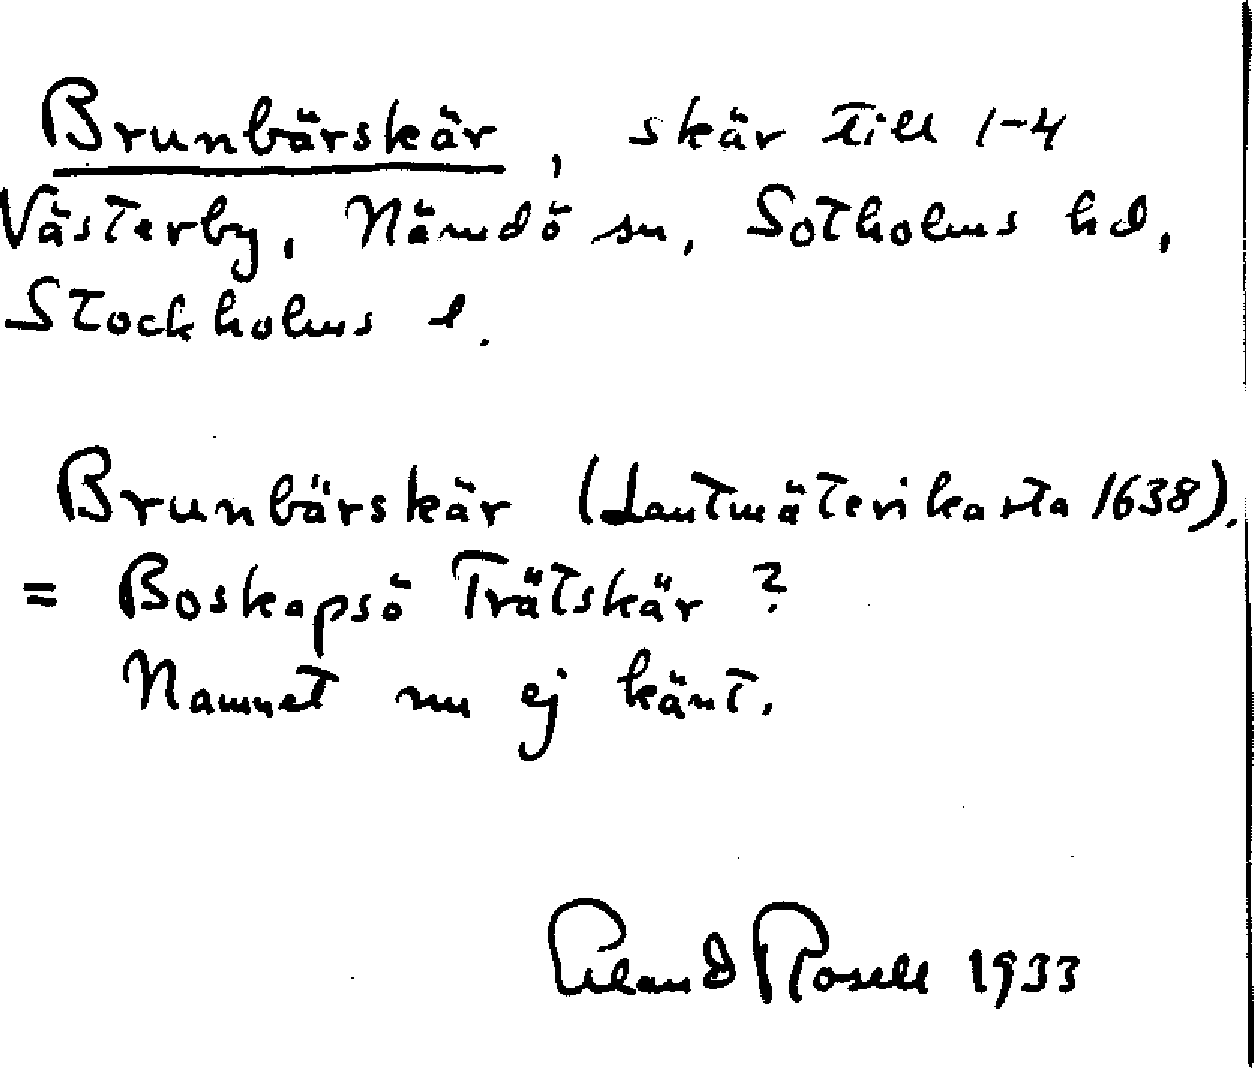 Brunbärskär, skär till 1-4
Västerby, Nämdö sn, Sotholms hd,
Stockholms l.
Brunbärskär (Lantmäterikarta 1638).
= Boskapsö Trätskär?
Namnet nu ej känt.
Erland Rosell 1933